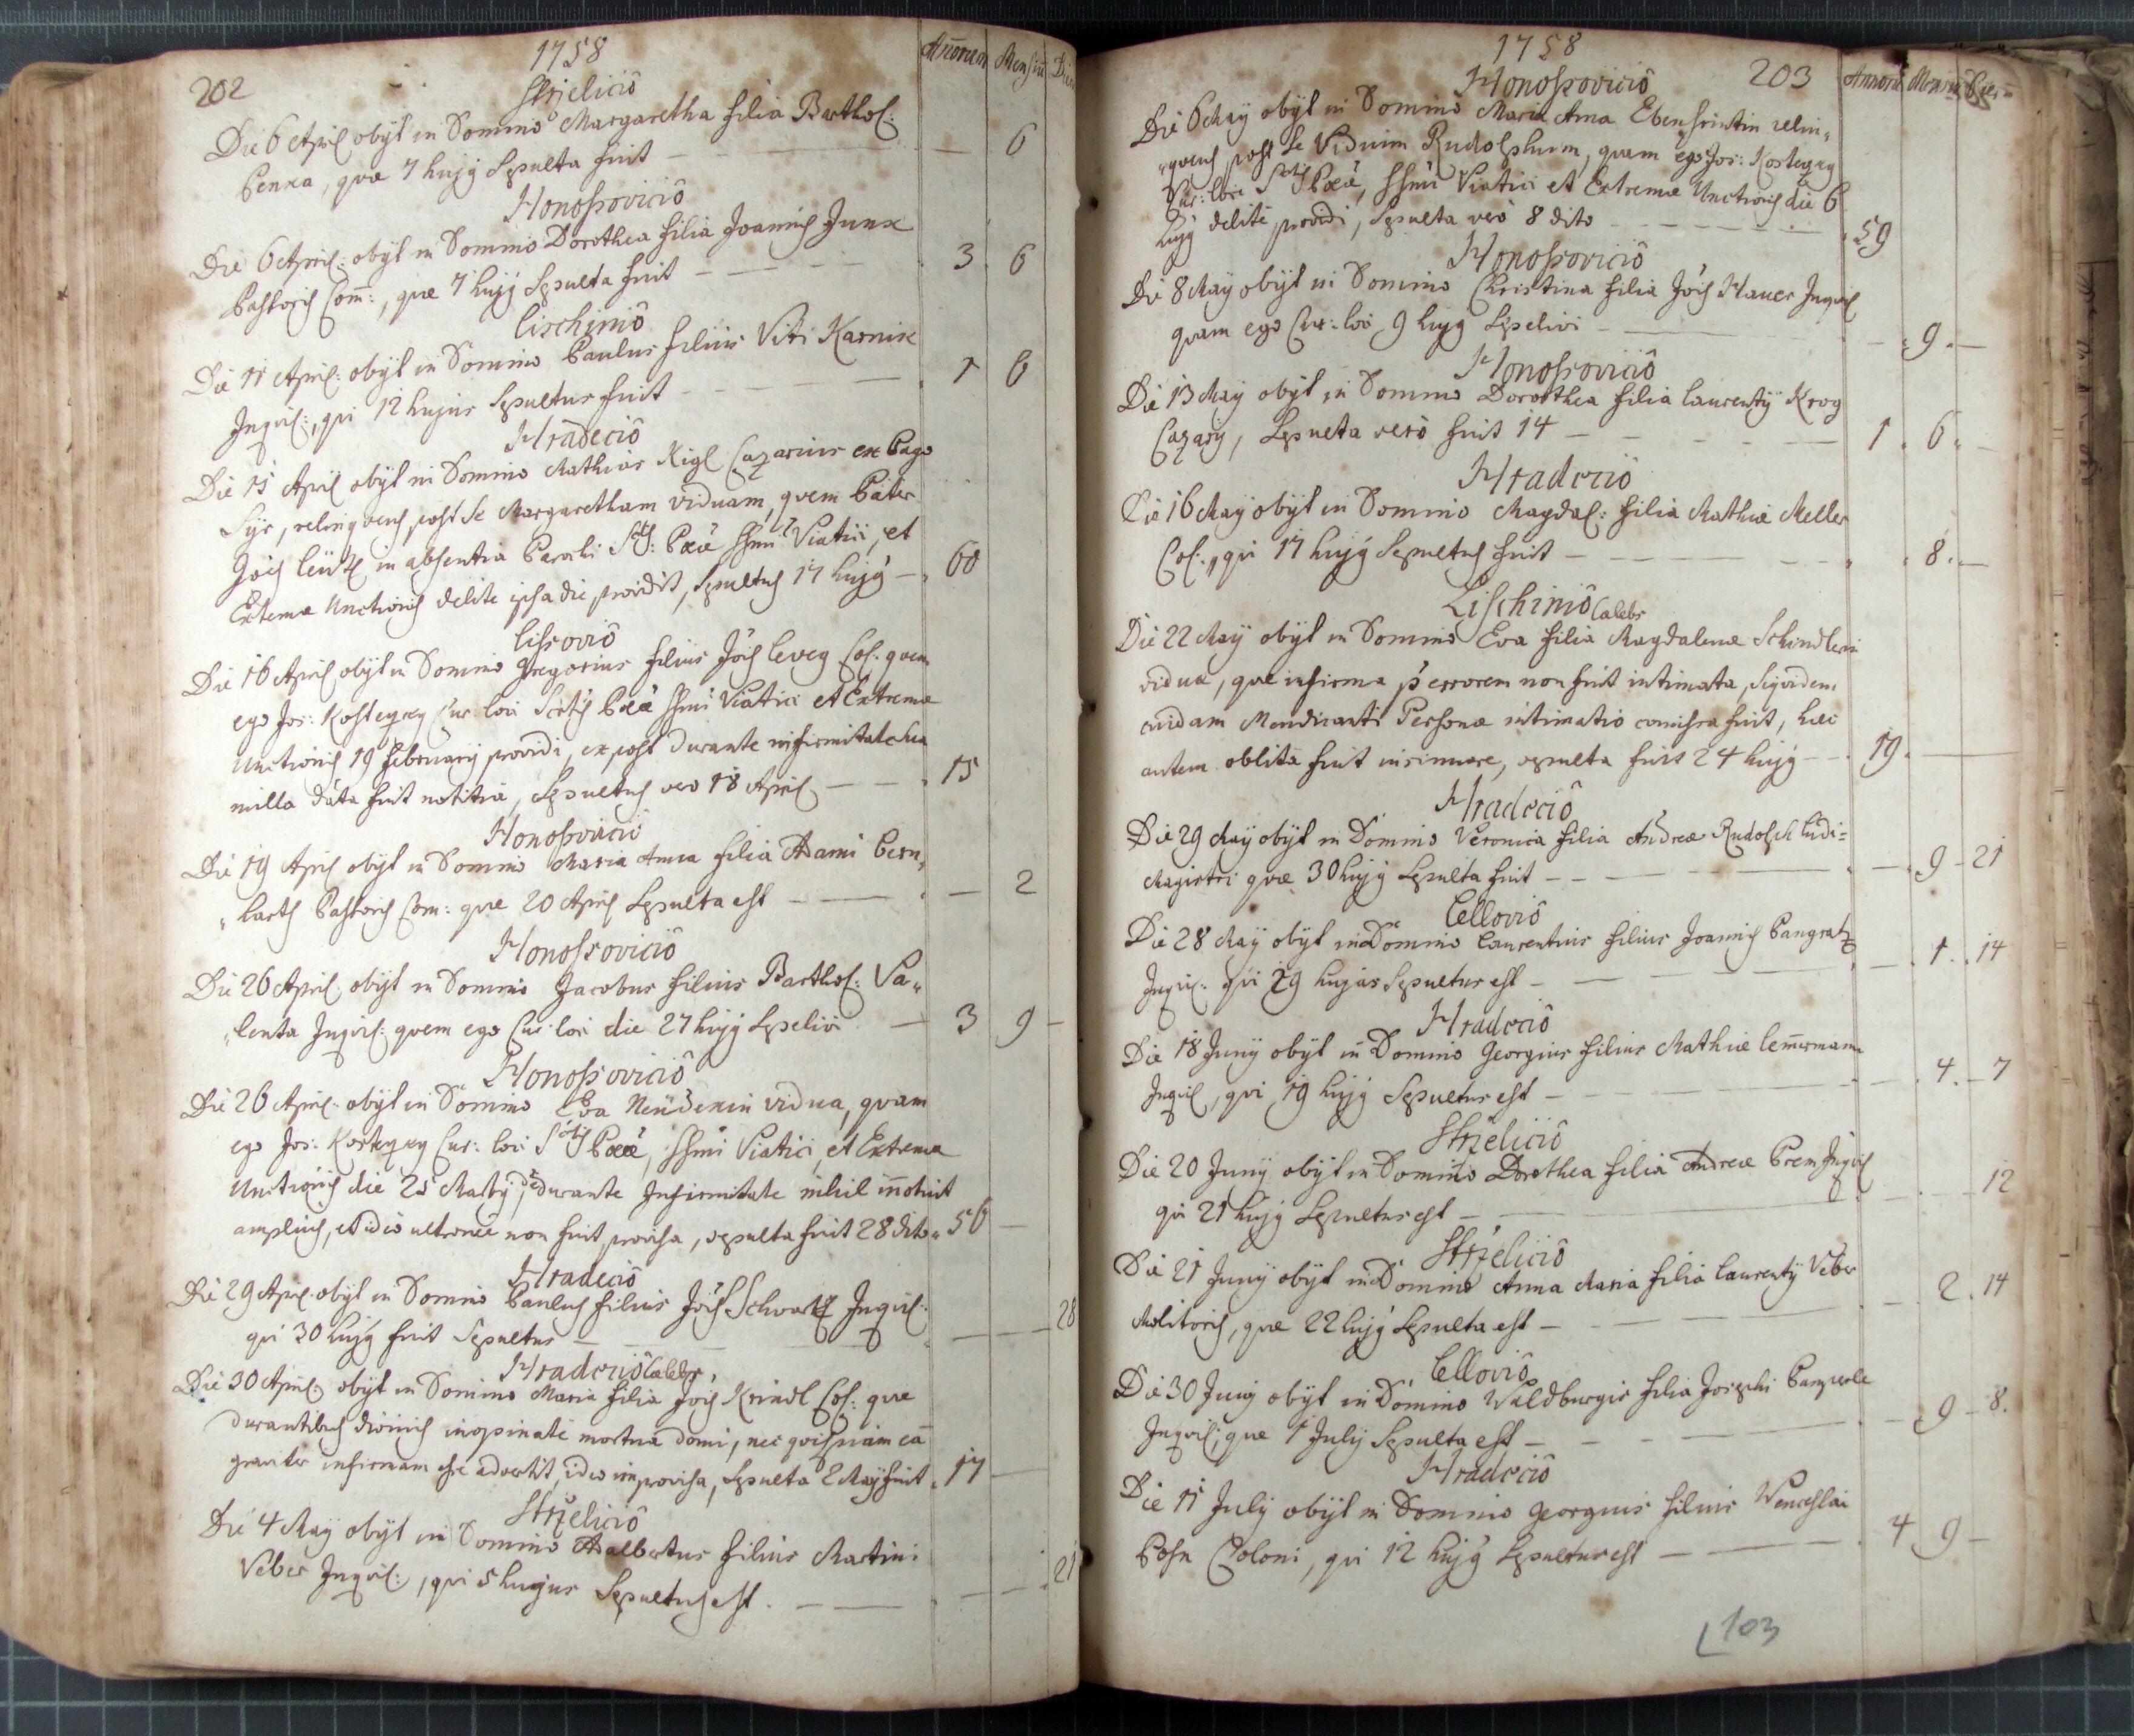 202
1758
Annorum Mensiū Dierū
Střeliciô
Die 6 April obijt in Domino Margaretha filia Barthol:
Penxa, quae 7 hujg Sepulta fuit — — 6
Honosroviciô
Die 6 April: obijt in Domino Dorothea filia Joannis Junx
Pastoris Com:, quae 7 hujg Sepulta fuit — 3 6
Lischiniô
Die 11 April: obijt in Domino Paulus filius Viti Karnix
Inquil:, qui 12 hujus Sepultus fuit — 1 6
Hradeciô
Die 15 April obijt in Domino Mathias Kigl Cazarius ex Pago
Syr, relinquens post se Margaretham viduam, quem Pater
Jois in absentia Parochi Sctis: Pœæ SSmi Viatici, et
Extremæ Unctionis delite ipsa die providit, Sepultus 17 hujg — 60
Lissoviô
Die 16 April obijt in Domino Gregorius filius Jois Leveg Col: quem
ego Jos: Kostegxy Cur loci Sctis Pœæ SSmi Viatici et Extremæ
Unctionis 19 February providi, ex post durante infirmitate sua
nulla data fuit notitia, Sepultus vero 18 April — 15
Honosroviciô
Die 19 April obijt in Domino Maria Anna filia Adami Bern„
„harts Pastoris Com: quae 20 April Sepulta est — — 2
Honosroviciô
Die 26 April: obijt in Domino Jacobus filius Barthol: Va„
„lenta Inquil: quem ego Cur loci die 27 hujg Sepelivi — 3 9 —
Honosroviciô
Die 26 April: obijt in Domino Eva vidua, quam
ego Jos: Kostegxy Cur: loci Sctis Pœæ, SSmi Viatici, et Extremæ
Unctionis die 25 Marty, durante Infirmitate nihil innotuit
amplius, et ideo ultronee non fuit provisa, sepulta fuit 28 dito 56 —
Hradeciô
Die 29 April: obijt in Domino Paulus filius Jois Schwartz Inquil:
qui 30 hujg fuit Sepultus — — — 28
Hradeciô Cælebs
Die 30 April: obijt in Domino Maria filia Jois Krindl Col: quae
durantibus divinis inopinate mortua domi, nec quispiam eā
graviter infirmam esse advertit, ideo improvisa, Sepulta 2 May fuit 17 —
Střeliciô
Die 4 May obijt in Domino Adalbertus filius Martini
Veber Inquil:, qui 5 hujus Sepultus est. — — — 21
1758
203
Annorū Mensiū Dierū
Honosroviciô
Die 6 May obijt in Domino Maria Anna relin„
„quens post se Viduum Rudolphum, quam ego Jos: Kostegxy
Cur: loci Sctis Pœæ, SSmi Viatici et Extremæ Unctionis die 6
hujg delite providi, Sepulta vero 8 dito — 59
Honosroviciô
Die 8 May obijt in Domino Christina filia Jois Hauer Inquil
quam ego Cur: loci 9 hujg Sepelivi — — 9 —
Honosroviciô
Die 13 May obijt in Domino Dorothea filia Laurenty Krog
Cazary, Sepulta vero fuit 14 — 1 6 —
Hradeciô
Die 16 May obijt in Domino Magdal: filia Mathiæ Meller
Col:, qui 17 hujg Sepultus fuit — 8 —
Lischiniô Cælebs
Die 22 May obijt in Domino Eva filia Magdalenæ Schindlerin
viduæ, quae infirma p errorem non fuit intimata, siquidem
cuidam Mendicanti Personæ intimatio comissa fuit, hæc
autem oblita fuit insinuare, sepulta fuit 24 hujg — 19 —
Hradeciô
Die 29 May obijt in Domino Veronica filia Andreæ Rudolph Ludi=
Magistri quae 30 hujg Sepulta fuit — — 9 — 21
Lelloviô
Die 28 May obijt in Domino Laurentius filius Joannis Pangratz
Inquil: qui 29 hujus Sepultus est — — 1 . 14
Hradeciô
Die 18 Juny obijt in Domino Georgius filius Mathiæ Lemermann
Inquil, qui 19 hujg Sepultus est — — 4 — 7
Střeliciô
Die 20 Juny obijt in Domino Dorothea filia Andreæ Prem Inquil
qui 21 hujg Sepultus est — — — 12
Střeliciô
Die 21 Juny obijt in Domino Anna Maria filia Laurenty Veber
Molitoris, quae 22 hujg Sepulta est — — 2 . 14
Lelloviô
Die 30 Juny obijt in Domino Waldburgis filia Josephi Pamperle
Inquil:, quae 1 July Sepulta est — — 9 — 8.
Hradeciô
Die 11 July obijt in Domino Georgius filius Wenceslai
Posn Coloni, qui 12 hujg Sepultus est — 4 9 —
103